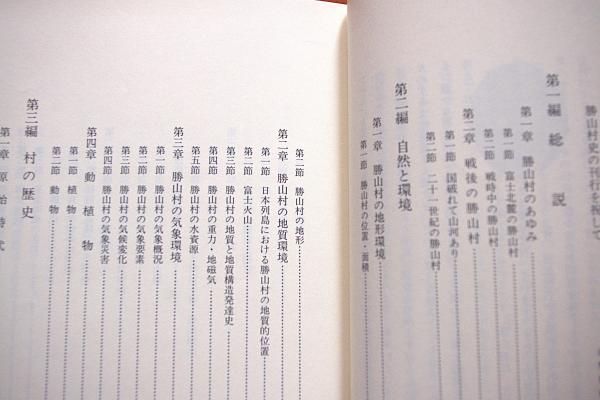 勝山村史の刊行を祝して
第一編 総説
第一章 勝山村のあゆみ
第一節 富士北麓の勝山村
第二節 戦時中の勝山村
第二章 戦後の勝山村
第一節 国破れて山河あり
第二節 二十一世紀の勝山村
第二編 自然と環境
第一章 勝山村の地形環境
第一節 勝山村の位置・面積
第二節 勝山村の地形
第二章 勝山村の地質環境
第一節 日本列島における勝山村の地質的位置
第二節 富士火山
第三節 勝山村の地質と地質構造発達史
第四節 勝山村の重力・地磁気
第五節 勝山村の水資源
第三章 勝山村の気象環境
第一節 勝山村の気象概況
第二節 勝山村の気象要素
第三節 勝山村の気候変化
第四節 勝山村の気象災害
第四章 動植物
第一節 植物
第二節 動物
第三編 村の歴史
第一章 原始時代